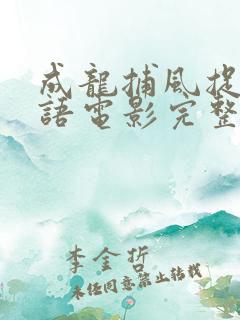 成龍捕風捉
語電影完整
李金哲
未任同意禁止转载